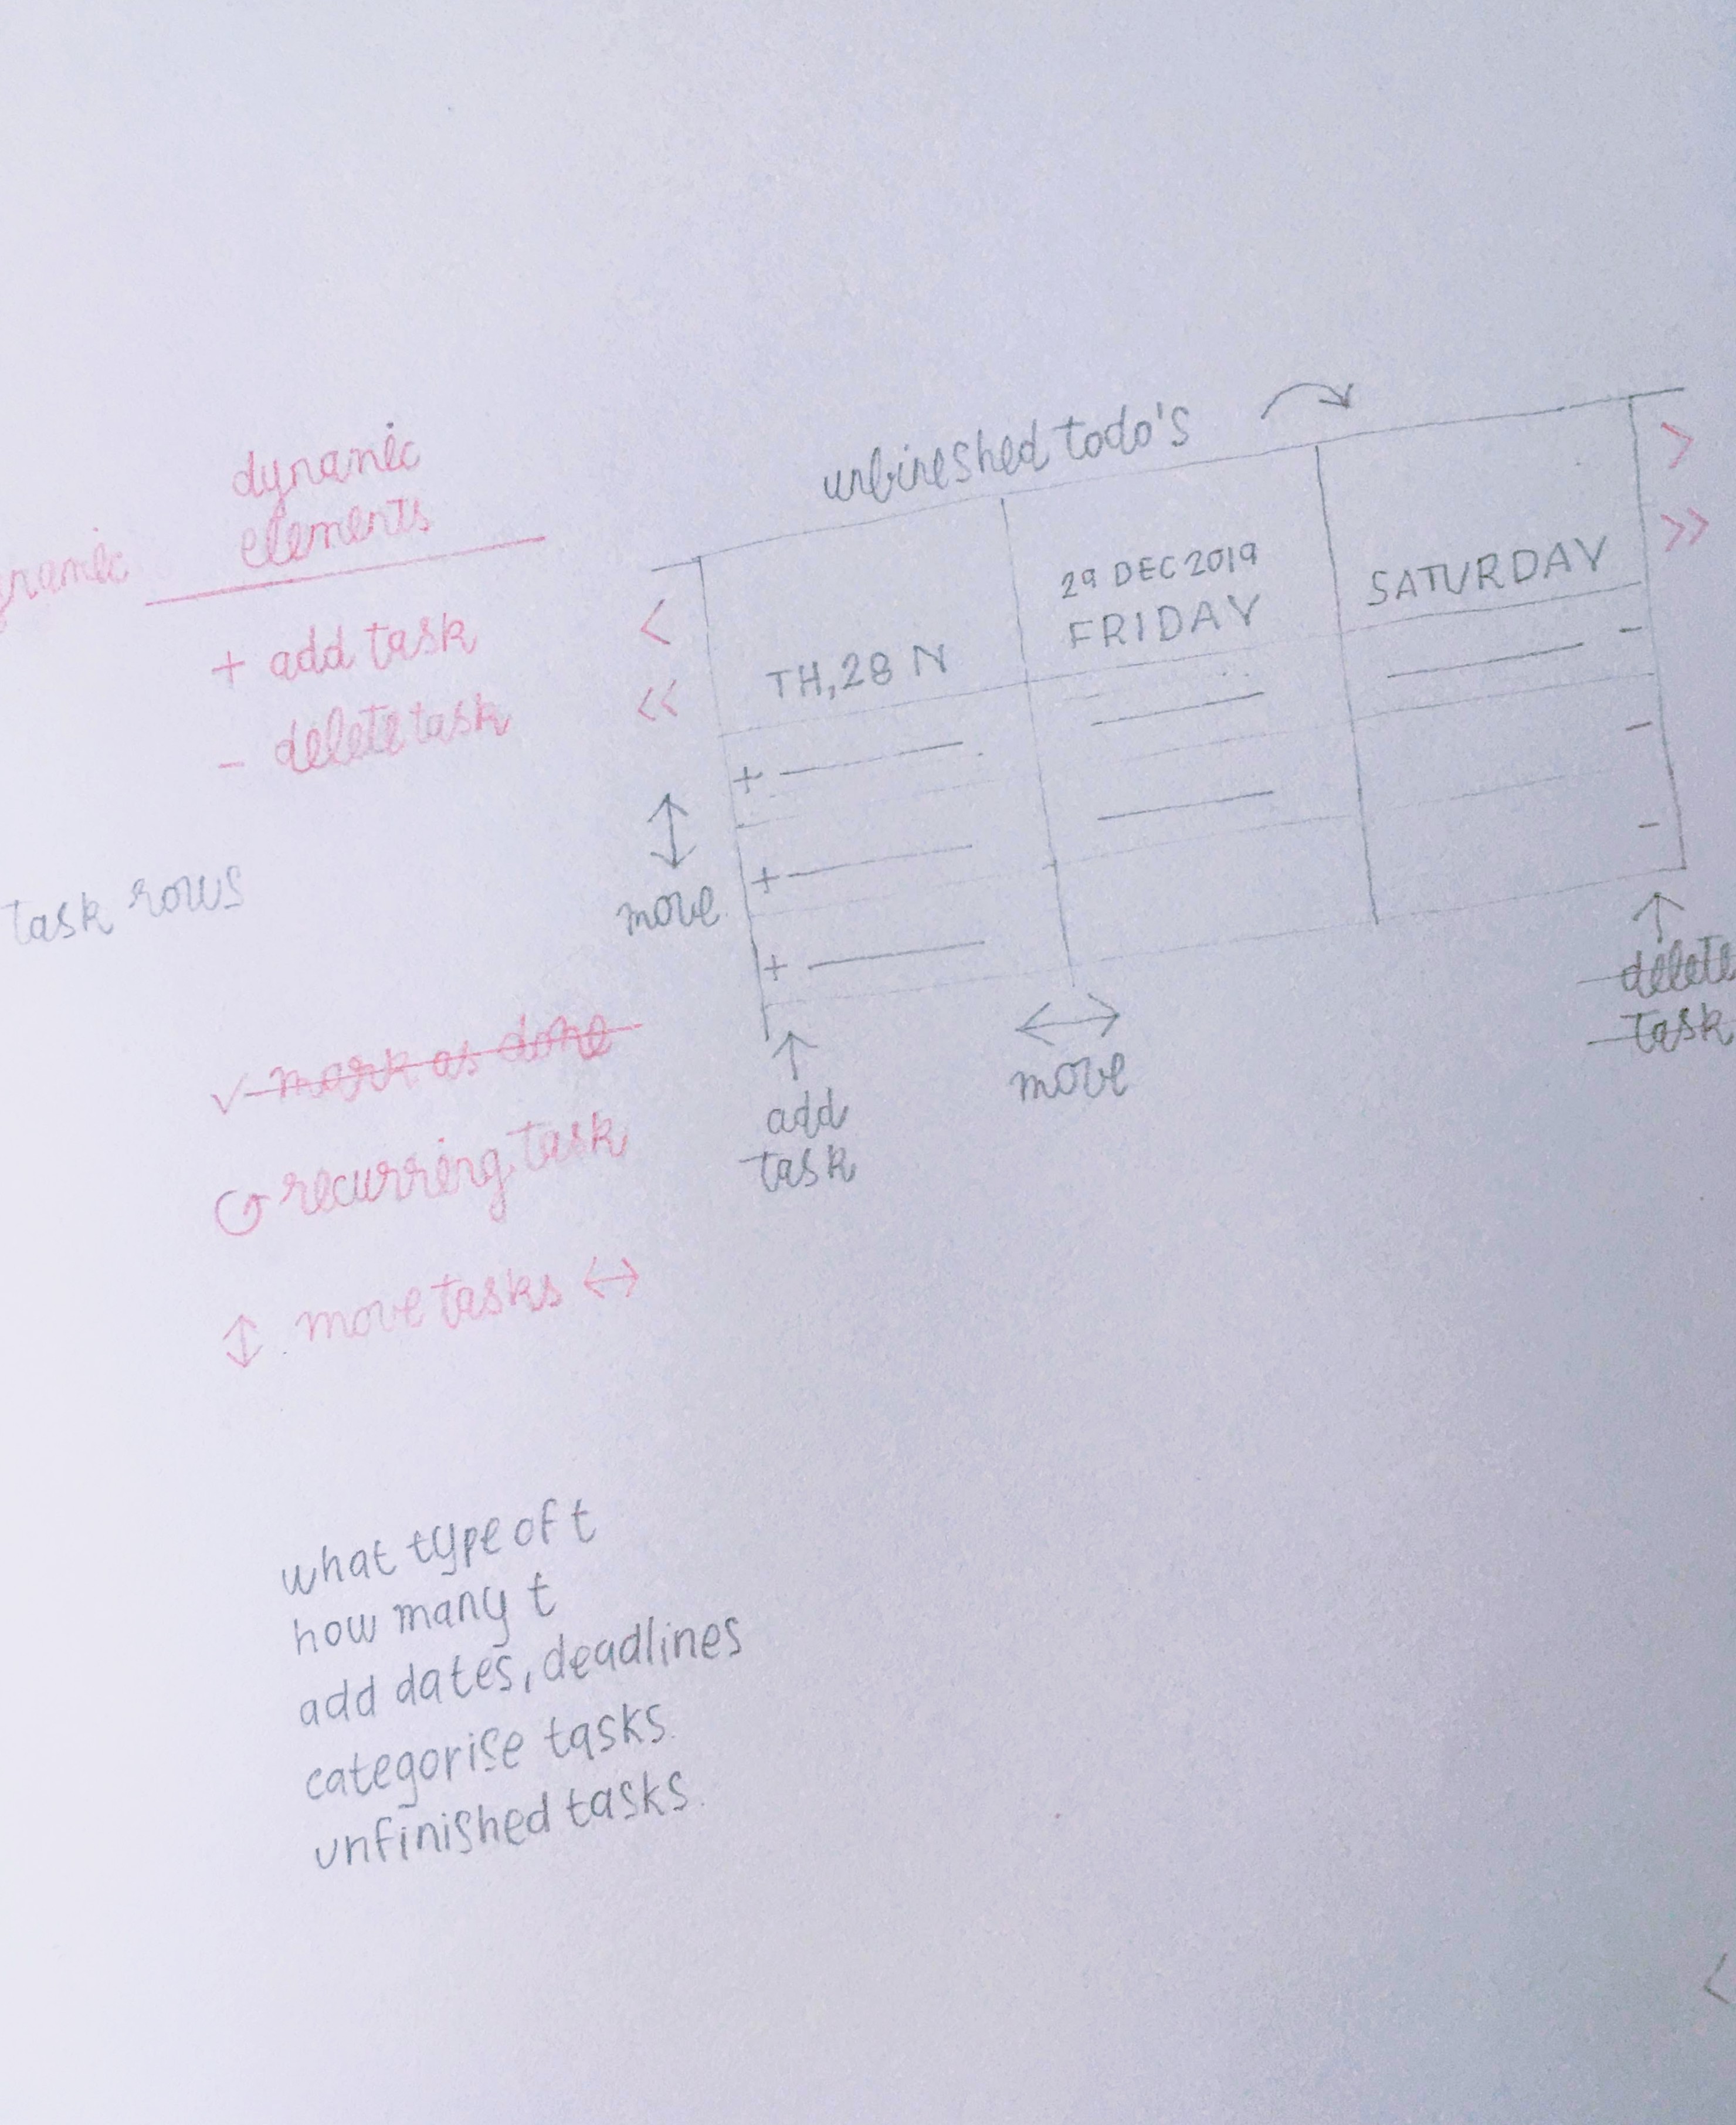 dynamic
elements
+ add task
- delete task
task rows
✓ mark as done
recurring task
↕ move tasks ↔
unfineshed todo's
<
<<
>
>>
TH, 28 N
29 DEC 2019
FRIDAY
SATURDAY
+
+
+
-
-
-
↕
move
↑
add
task
↔
move
↑
delete
task
what type of t
how many t
add dates, deadlines
categorise tasks
unfinished tasks
<